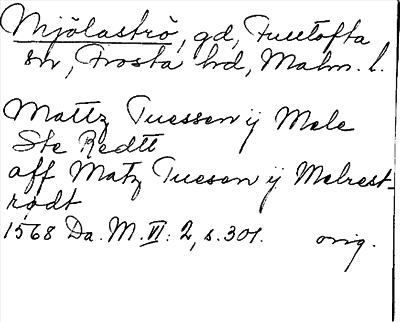 Mjölaströ, gd, Fulltofta
sn, Frosta hd, Malm. l.
Mattz Tuessen ÿ Mele
Ste Redtt
aff Matz Tueson ÿ Melrest-
rødt
1568 Da. M. VI: 2, s. 301. orig.